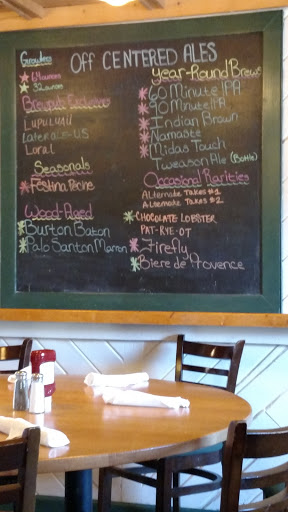 Off Centered Ales
Growlers
64 ounces
32 ounces
Brewpub Exclusives
Lupuluau
Loral
Seasonals
Festina Peche
Wood-Aged
Burton Baton
Palo Santo Marron
Year-Round Brews
60 Minute IPA
90 Minute IPA
Indian Brown
Namaste
Midas Touch
Tweason Ale (Bottle)
Occasional Rarities
Alternate Takes #1
Alternate Takes #2
Chocolate Lobster
Pat-Rye-Ot
Firefly
Biere de Provence